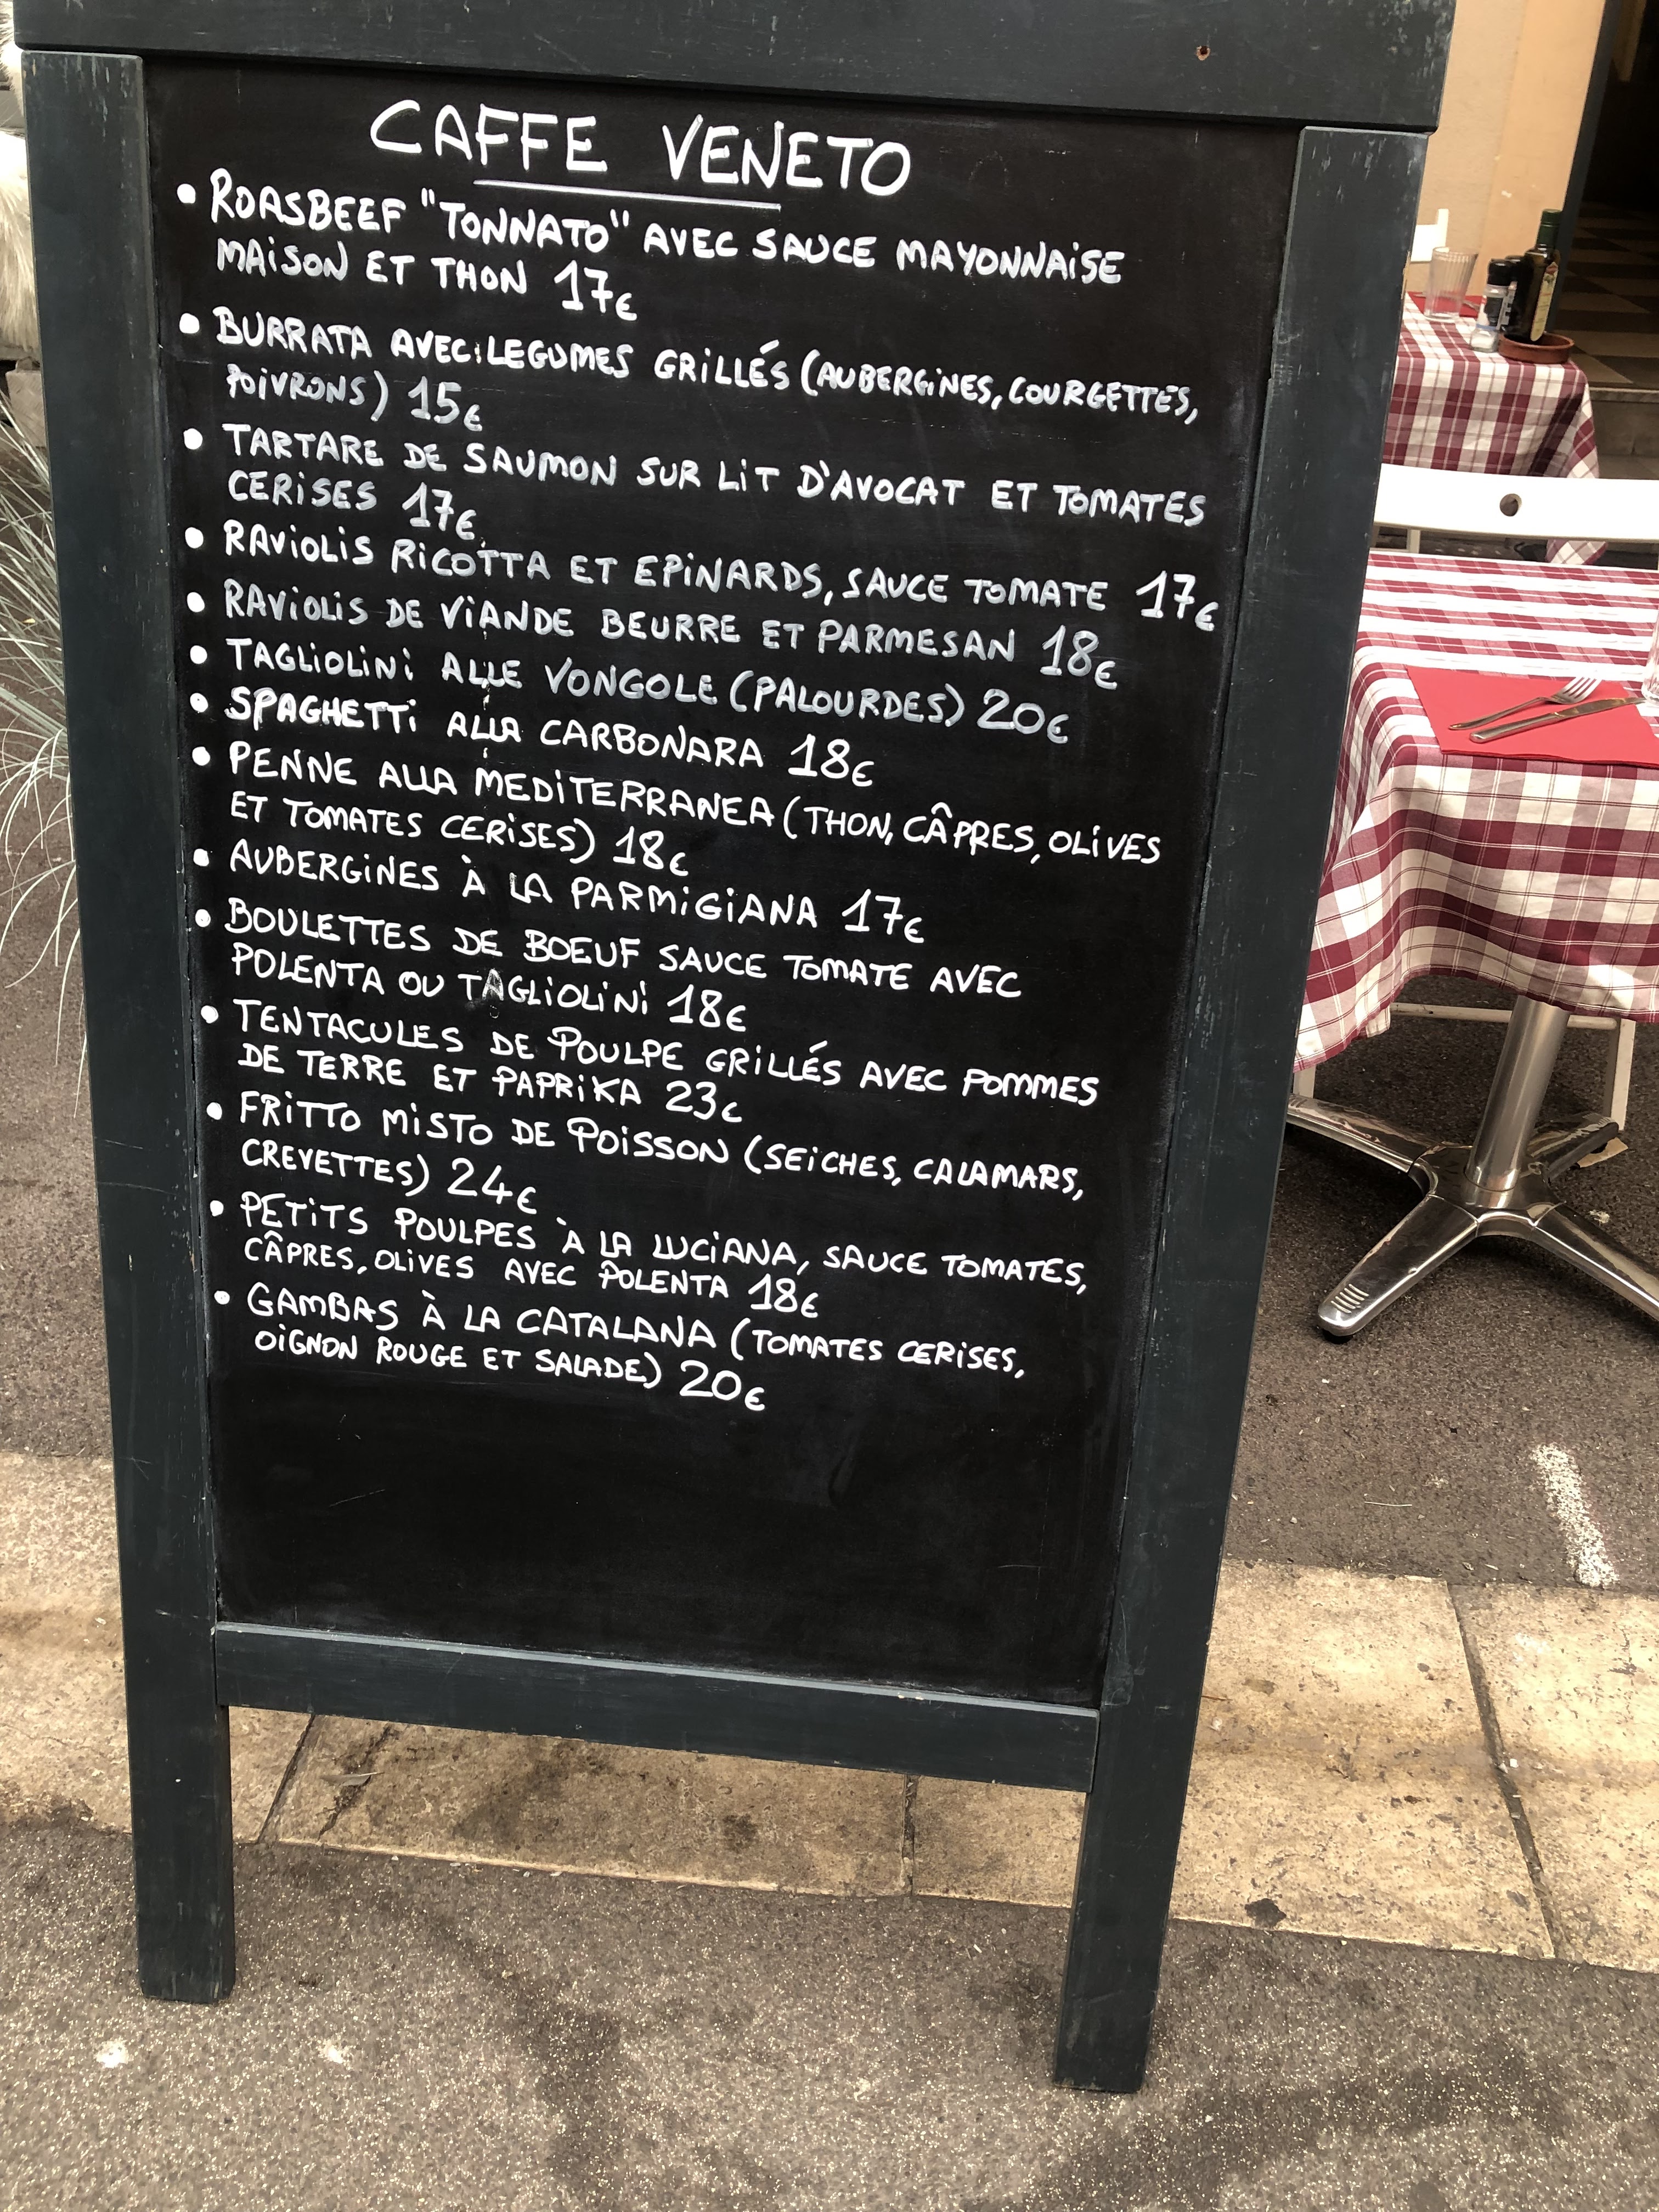 CAFFE VENETO
• ROASBEEF "TONNATO" AVEC SAUCE MAYONNAISE
MAISON ET THON 17€
• BURRATA AVEC LEGUMES GRILLÉS (AUBERGINES, COURGETTES,
POIVRONS) 15€
• TARTARE DE SAUMON SUR LIT D'AVOCAT ET TOMATES
CERISES 17€
• RAVIOLIS RICOTTA ET EPINARDS, SAUCE TOMATE 17€
• RAVIOLIS DE VIANDE BEURRE ET PARMESAN 18€
• TAGLIOLINI ALLE VONGOLE (PALOURDES) 20€
• SPAGHETTI ALLA CARBONARA 18€
• PENNE ALLA MEDITERRANEA (THON, CÂPRES, OLIVES
ET TOMATES CERISES) 18€
• AUBERGINES À LA PARMIGIANA 17€
• BOULETTES DE BOEUF SAUCE TOMATE AVEC
POLENTA OU TAGLIOLINI 18€
• TENTACULES DE POULPE GRILLÉS AVEC POMMES
DE TERRE ET PAPRIKA 23€
• FRITTO MISTO DE POISSON (SEICHES, CALAMARS,
CREVETTES) 24€
• PETITS POULPES À LA LUCIANA, SAUCE TOMATES,
CÂPRES, OLIVES AVEC POLENTA 18€
• GAMBAS À LA CATALANA (TOMATES CERISES,
OIGNON ROUGE ET SALADE) 20€